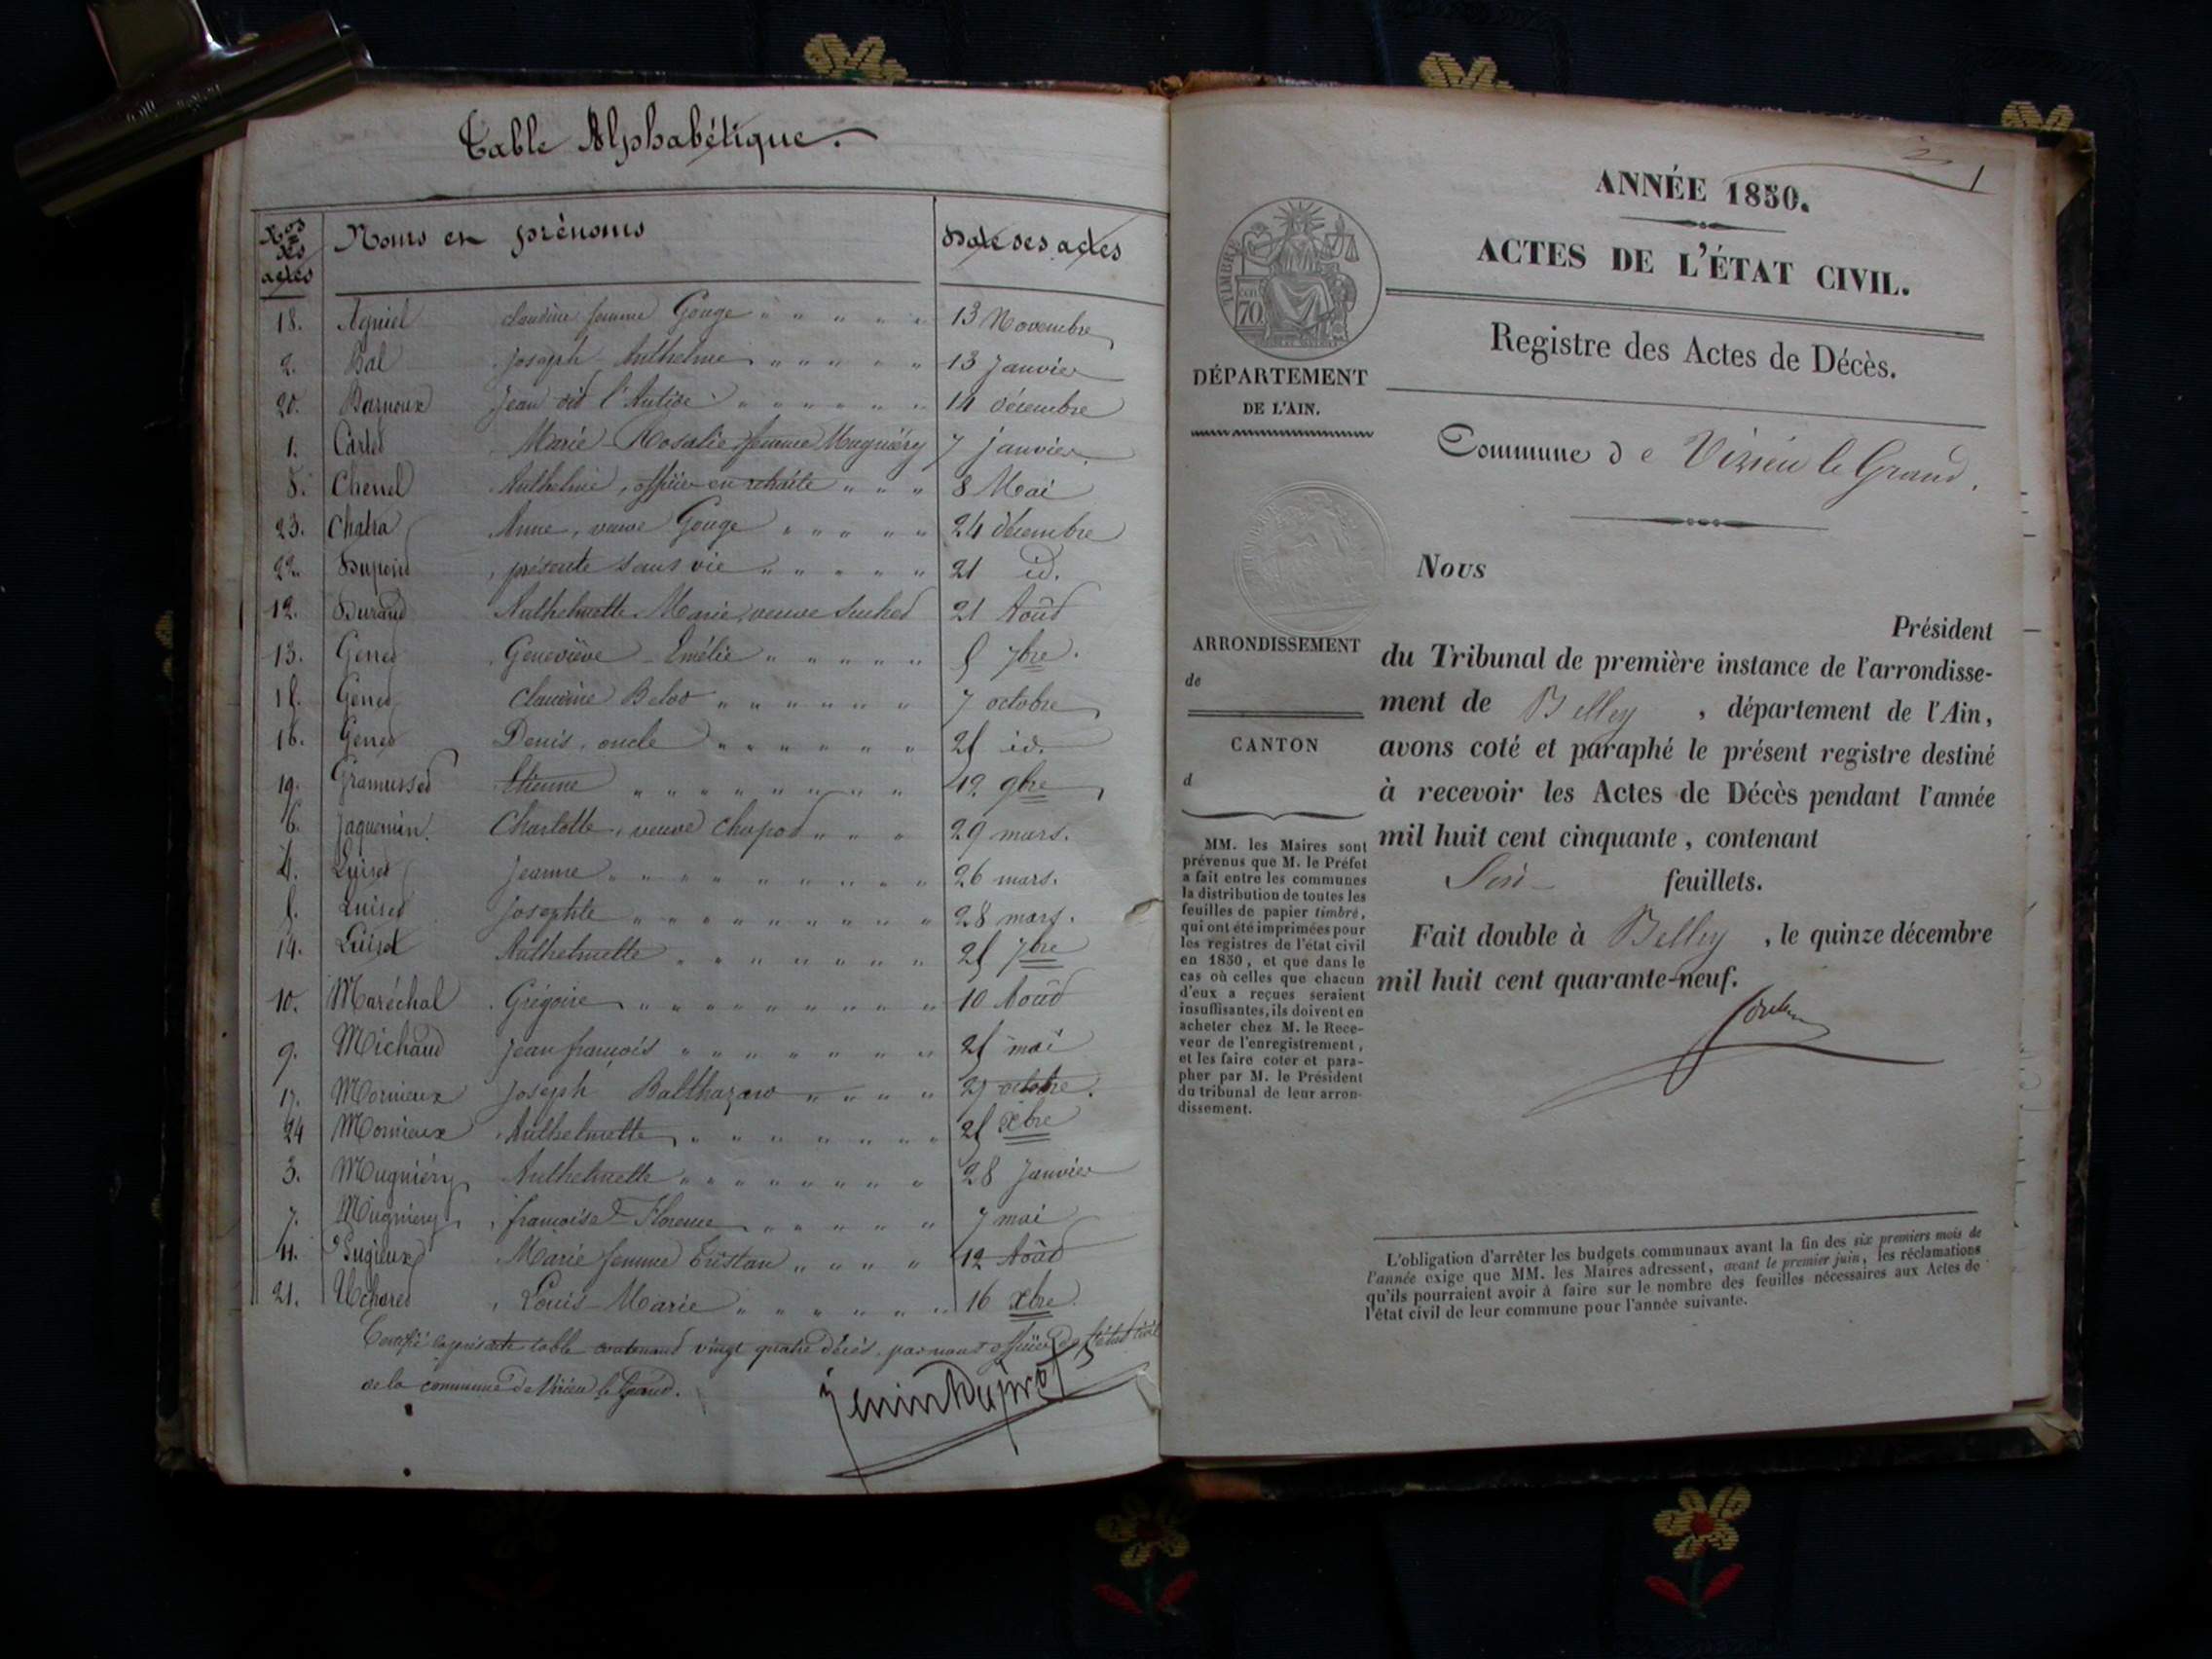 Table Alphabétique.
Nos des actes
Noms et prénoms
Date des actes
18. Agniel Claudine femme Gouge " " " " " 13 Novembre
2. Bal Joseph Anthelme " " " " " 13 Janvier
20. Barnoux Jean dit l'Antide " " " " " " 14 décembre
1. Cartet Marie Rosalie femme Mugniéry 7 janvier
8. Chenel Anthelme, officier en retraite " " " 8 Mai
23. Chatra Anne, veuve Gouge " " " " " 24 décembre
22. Dupond, présenté sans vie " " " " " 21 id.
12. Durand Anthelmette Marie veuve 21 Août
13. Genet Geneviève Emélie " " " " " 5 7bre.
15. Genet Claudine Belot " " " " " " 7 octobre
16. Genet Denis, oncle " " " " " " 25 id.
19. Gramusset Etienne " " " " " " " " 12 9bre
6. Jaquemin Charlotte, veuve Chapot " " " 29 mars.
4. Luiset Jeanne " " " " " " " " " 26 mars.
5. Luiset Josephte " " " " " " " " " 28 mars.
14. Luiset Anthelmette " " " " " " " 25 7bre
10. Maréchal Grégoire " " " " " " " " " 10 Août
9. Michaud Jean françois " " " " " " " 25 mai
17. Mornieux Joseph Balthazard " " " " 27 octobre.
24 Mornieux Anthelmette " " " " " " " 25 xbre
3. Mugniéry Anthelmette " " " " " " " " 28 Janvier
7. Mugniery, françoise Florence " " " " " 7 mai
11. Pugieux Marie femme Tristan " " " " 12 Août
21. Uchard, Louis-Marie " " " " " " " 16 xbre
Certifié la présente table contenant vingt quatre décès, par nous officier de l'état civil
de la commune de Virieu le Grand.
JeninDuprot
1
ANNÉE 1850.
ACTES DE L'ÉTAT CIVIL.
Registre des Actes de Décès.
TIMBRE
70
DÉPARTEMENT
DE L'AIN.
Commune de Virieu le Grand.
ARRONDISSEMENT
de
CANTON
d
MM. les Maires sont
prévenus que M. le Préfet
a fait entre les communes
la distribution de toutes les
feuilles de papier timbré,
qui ont été imprimées pour
les registres de l'état civil
en 1850, et que dans le
cas où celles que chacun
d'eux a reçues seraient
insuffisantes, ils doivent en
acheter chez M. le Rece-
veur de l'enregistrement,
et les faire coter et para-
pher par M. le Président
du tribunal de leur arron-
dissement.
Nous
Président
du Tribunal de première instance de l'arrondisse-
ment de Belley, département de l'Ain,
avons coté et paraphé le présent registre destiné
à recevoir les Actes de Décès pendant l'année
mil huit cent cinquante, contenant
feuillets.
Fait double à Belley, le quinze décembre
mil huit cent quarante-neuf.
L'obligation d'arrêter les budgets communaux avant la fin des six premiers mois de
l'année exige que MM. les Maires adressent, avant le premier juin, les réclamations
qu'ils pourraient avoir à faire sur le nombre des feuilles nécessaires aux Actes de
l'état civil de leur commune pour l'année suivante.